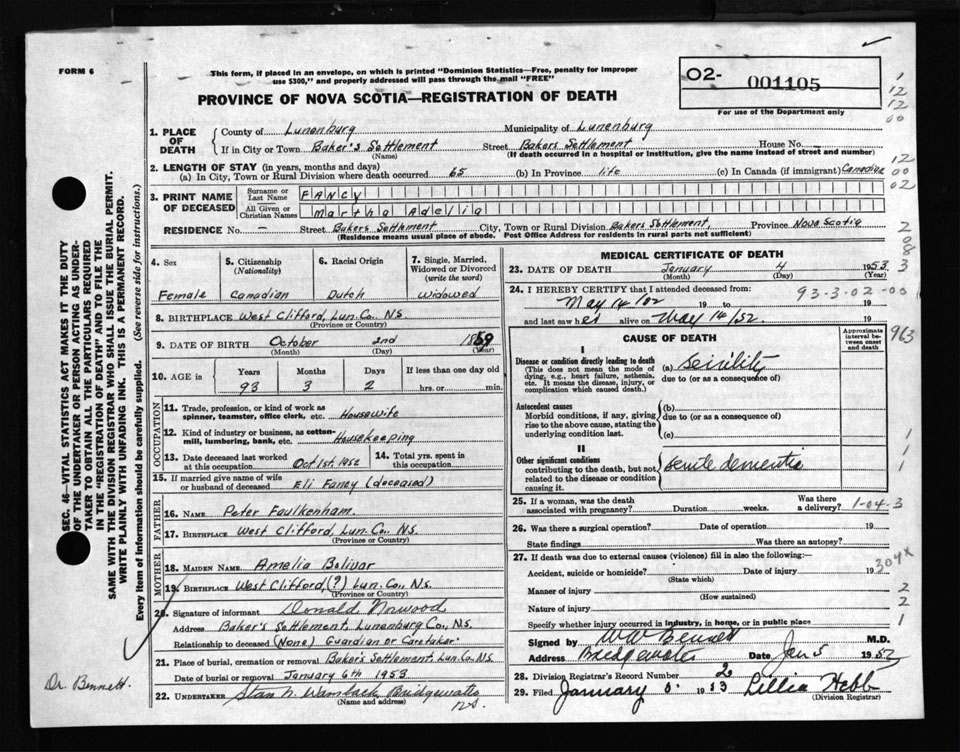 FORM 6
This form, if placed in an envelope, on which is printed "Dominion Statistics—Free, penalty for improper
use $300," and properly addressed will pass through the mail "FREE"
PROVINCE OF NOVA SCOTIA—REGISTRATION OF DEATH
02- 001105
For use of the Department only
1. PLACE OF DEATH
County of Lunenburg Municipality of Lunenburg
If in City or Town Baker's Settlement Street Bakers Settlement House No.
(Name) (If death occurred in a hospital or institution, give the name instead of street and number)
2. LENGTH OF STAY (in years, months and days)
(a) In City, Town or Rural Division where death occurred 65 (b) In Province life (c) In Canada (if immigrant) Canadian
3. PRINT NAME OF DECEASED
Surname or Last Name FANCY
All Given or Christian Names Martha Adelia
RESIDENCE No. — Street Bakers Settlement City, Town or Rural Division Bakers Settlement, Province Nova Scotia
(Residence means usual place of abode. Post Office Address for residents in rural parts not sufficient)
4. Sex
Female
5. Citizenship
(Nationality)
Canadian
6. Racial Origin
Dutch
7. Single, Married,
Widowed or Divorced
(write the word)
Widowed
8. BIRTHPLACE West Clifford, Lun. Co. N.S.
(Province or Country)
9. DATE OF BIRTH October 2nd 1859
(Month) (Day) (Year)
10. AGE in Years Months Days If less than one day old
93 3 2 hrs. or min.
OCCUPATION
11. Trade, profession, or kind of work as
spinner, teamster, office clerk, etc. Housewife
12. Kind of industry or business, as cotton-
mill, lumbering, bank, etc. Housekeeping
13. Date deceased last worked
at this occupation Oct 1st, 1952
14. Total yrs. spent in
this occupation
15. If married give name of wife
or husband of deceased Eli Fancy (deceased)
FATHER
16. NAME Peter Faulkenham.
17. BIRTHPLACE West Clifford, Lun. Co., N.S.
(Province or Country)
MOTHER
18. MAIDEN NAME Amelia Bolivar
19. BIRTHPLACE West Clifford, (?) Lun. Co., N.s.
(Province or Country)
20. Signature of informant Donald Norwood
Address Baker's Settlement, Lunenburg Co., N.S.
Relationship to deceased (None) Guardian or Caretaker.
21. Place of burial, cremation or removal Baker's Settlement, Lun. Co., N.S.
Date of burial or removal January 6th 1953
22. UNDERTAKER Stan N. Wamback Bridgewater
(Name and address) n.s.
MEDICAL CERTIFICATE OF DEATH
23. DATE OF DEATH January 4 1953
(Month) (Day)
24. I HEREBY CERTIFY that I attended deceased from: 93-3-02-00
May 14/52 19 to 19
and last saw her alive on May 14/52. 19
CAUSE OF DEATH
Approximate
interval between
onset
and death
I
Disease or condition directly leading to death
(This does not mean the mode of
dying, e.g., heart failure, asthenia,
etc. It means the disease, injury, or
complication which caused death.)
(a) Senility
due to (or as a consequence of)
Antecedent causes
Morbid conditions, if any, giving
rise to the above cause, stating the
underlying condition last.
(b)
due to (or as a consequence of)
(c)
II
Other significant conditions
contributing to the death, but not
related to the disease or condition
causing it.
senile dementia
25. If a woman, was the death
associated with pregnancy? Duration weeks. Was there
a delivery? 1-04-3
26. Was there a surgical operation? Date of operation 19
State findings Was there an autopsy?
27. If death was due to external causes (violence) fill in also the following:—
Accident, suicide or homicide? Date of injury 19
(State which)
Manner of injury
(How sustained)
Nature of injury
Specify whether injury occurred in industry, in home, or in public place
Signed by W W Bennett M.D.
Address Bridgewater Date Jan 5 1952
28. Division Registrar's Record Number 2
29. Filed January 1953 Lillia Hebb
(Division Registrar)
SEC. 46—VITAL STATISTICS ACT MAKES IT THE DUTY
OF THE UNDERTAKER OR PERSON ACTING AS UNDER-
TAKER TO OBTAIN ALL THE PARTICULARS REQUIRED
IN THE "REGISTRATION OF DEATH" AND TO FILE THE
SAME WITH THE DIVISION REGISTRAR WHO SHALL ISSUE THE BURIAL PERMIT.
WRITE PLAINLY WITH UNFADING INK. THIS IS A PERMANENT RECORD.
Every item of information should be carefully supplied. (See reverse side for instructions.)
Dr Bennett.
1
12
12
00
12
00
02
2
0
8
3
963
1
1
1
304x
2
2
1